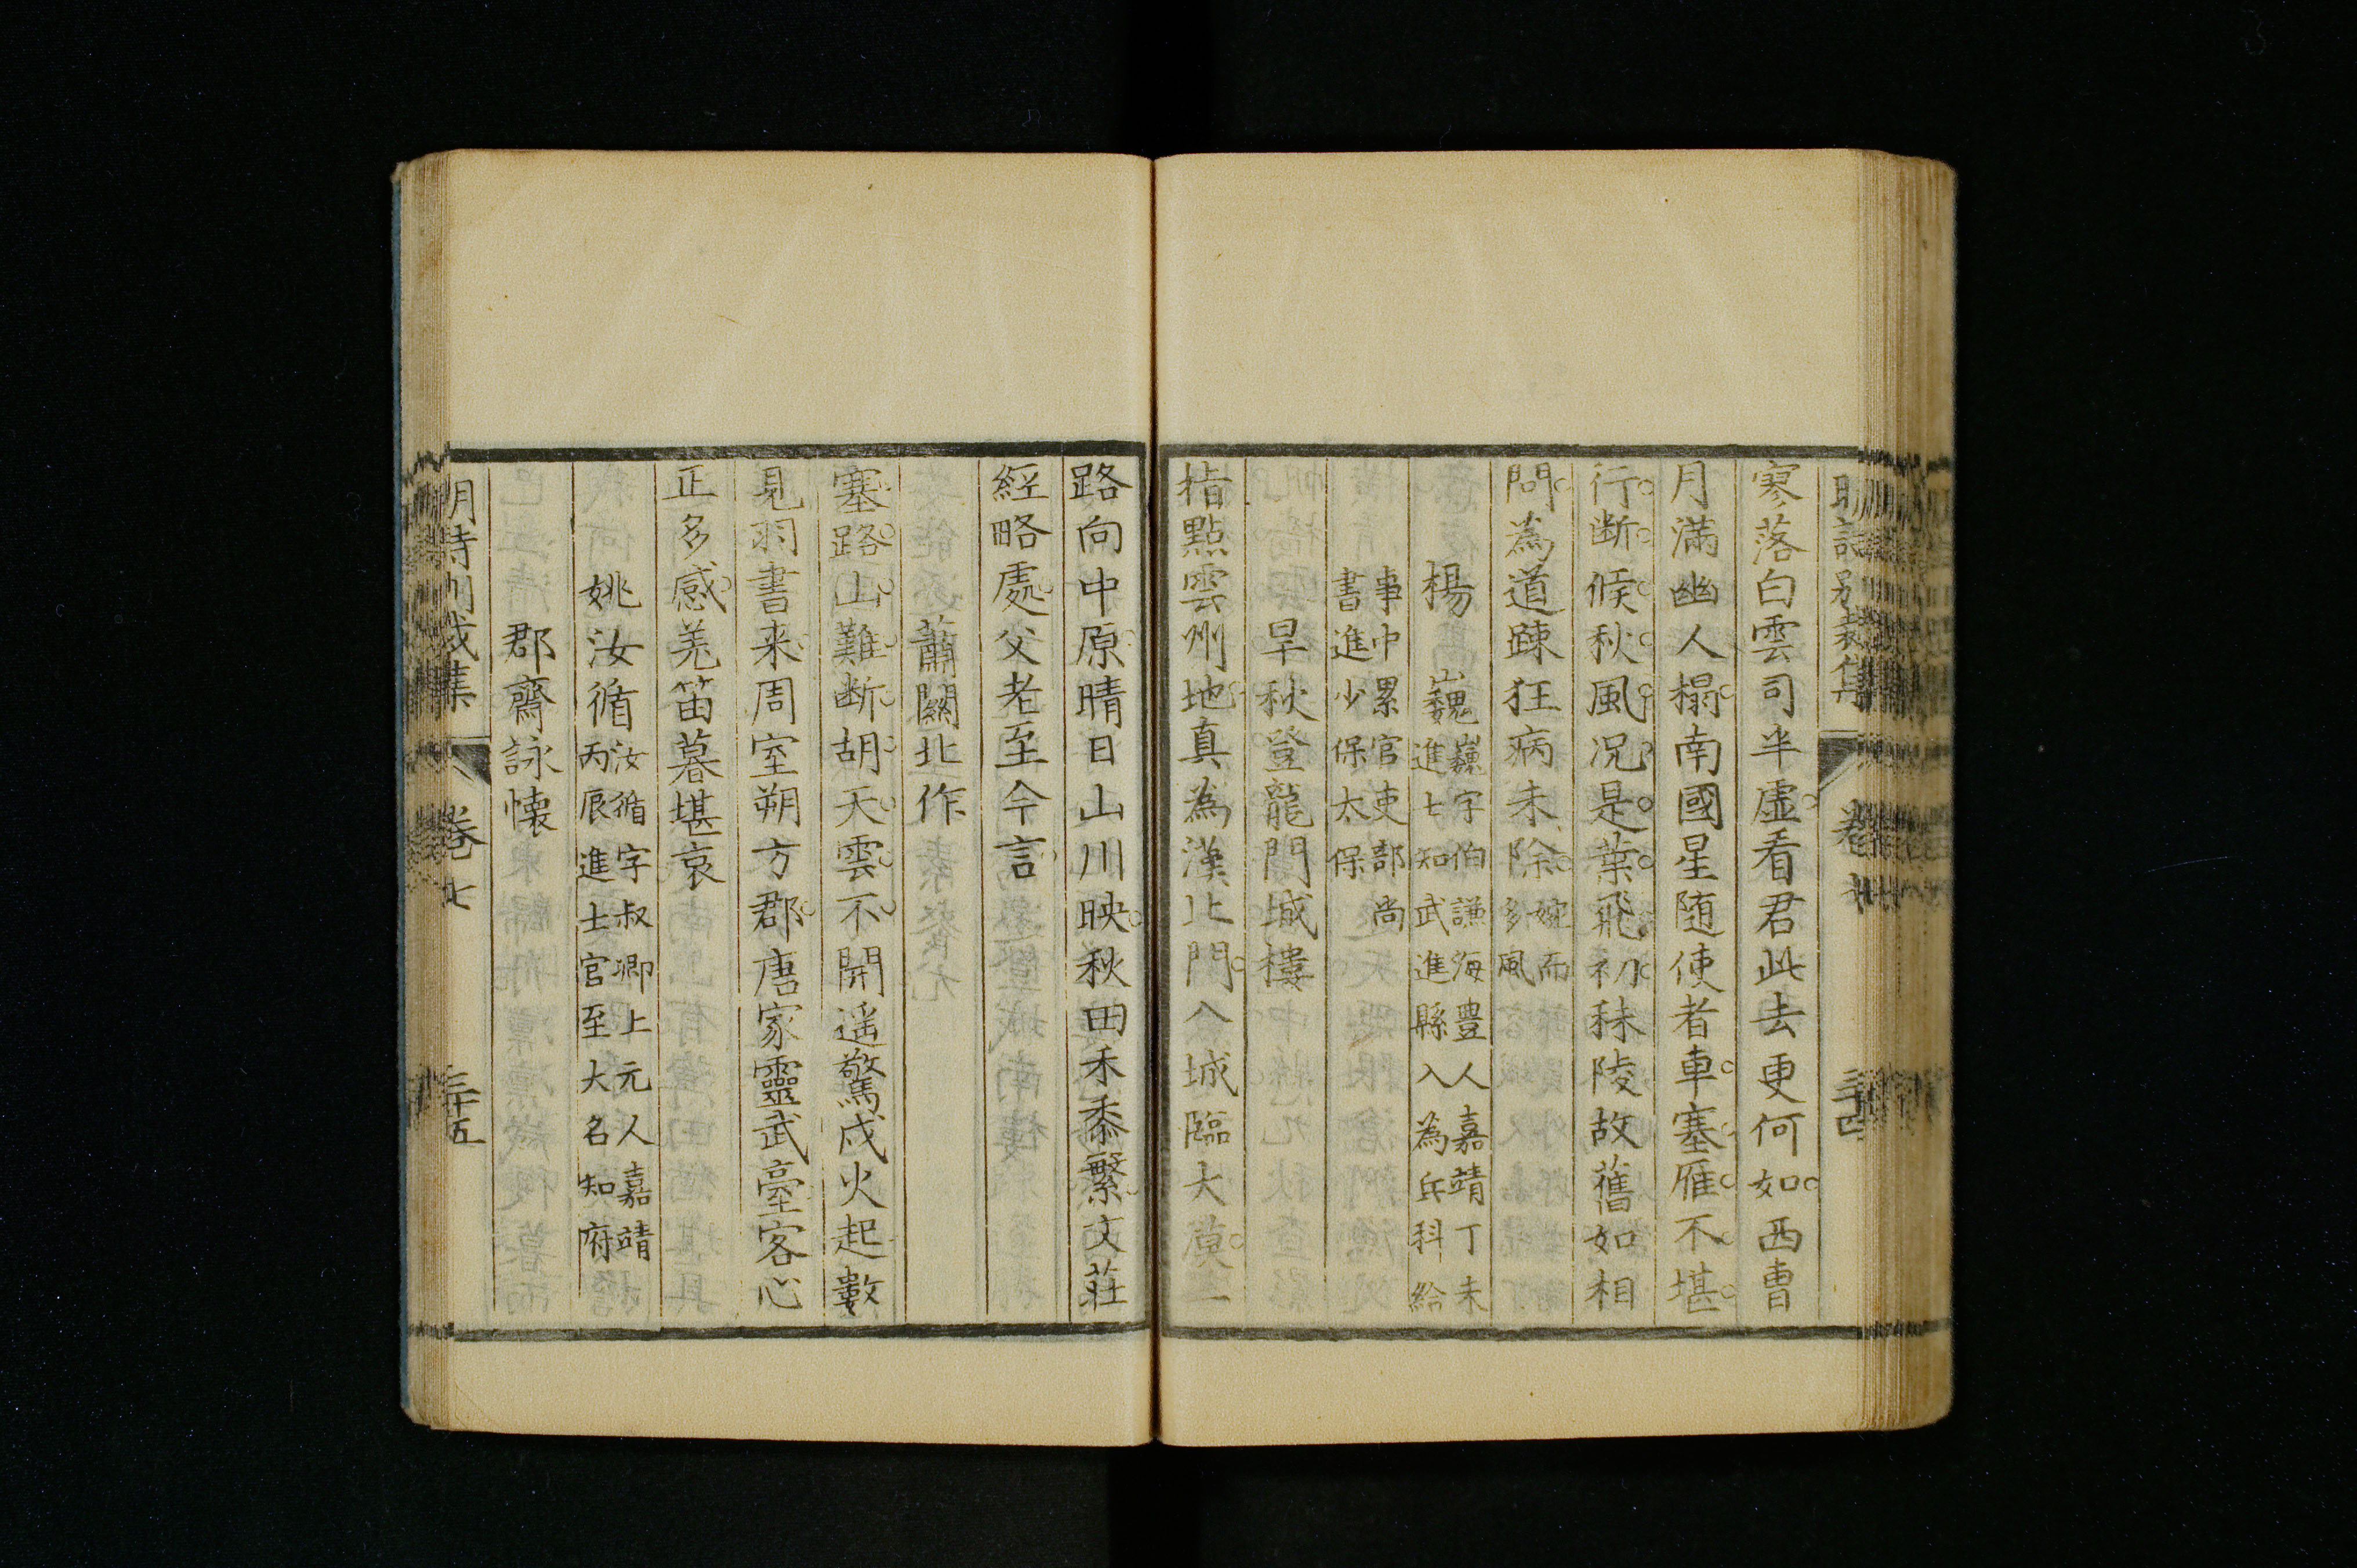 寥落白雲司半虛看君此去更何如西曹
月滿幽人榻南國星隨使者車塞雁不堪
行斷候秋風況是葉飛初秣陵故舊如相
問為道踈狂病未除婉而多風
楊巍巍字伯謙海豊人嘉靖丁未進士知武進縣入為兵科給
事中累官吏部尚書進少保太保
早秋登龍門城樓
指點雲州地真為漢北門入城臨大漠一
路向中原晴日山川映秋田禾黍繁文莊
經略處父老至今言
蕭關北作
塞路山難断胡天雲不開遥驚戍火起數
見羽書来周室朔方郡唐家靈武臺客心
正多感羌笛暮堪哀
姚汝循汝循字叔卿上元人嘉靖丙辰進士官至大名知府
郡齋詠懐
明詩別裁集 卷七 三十五